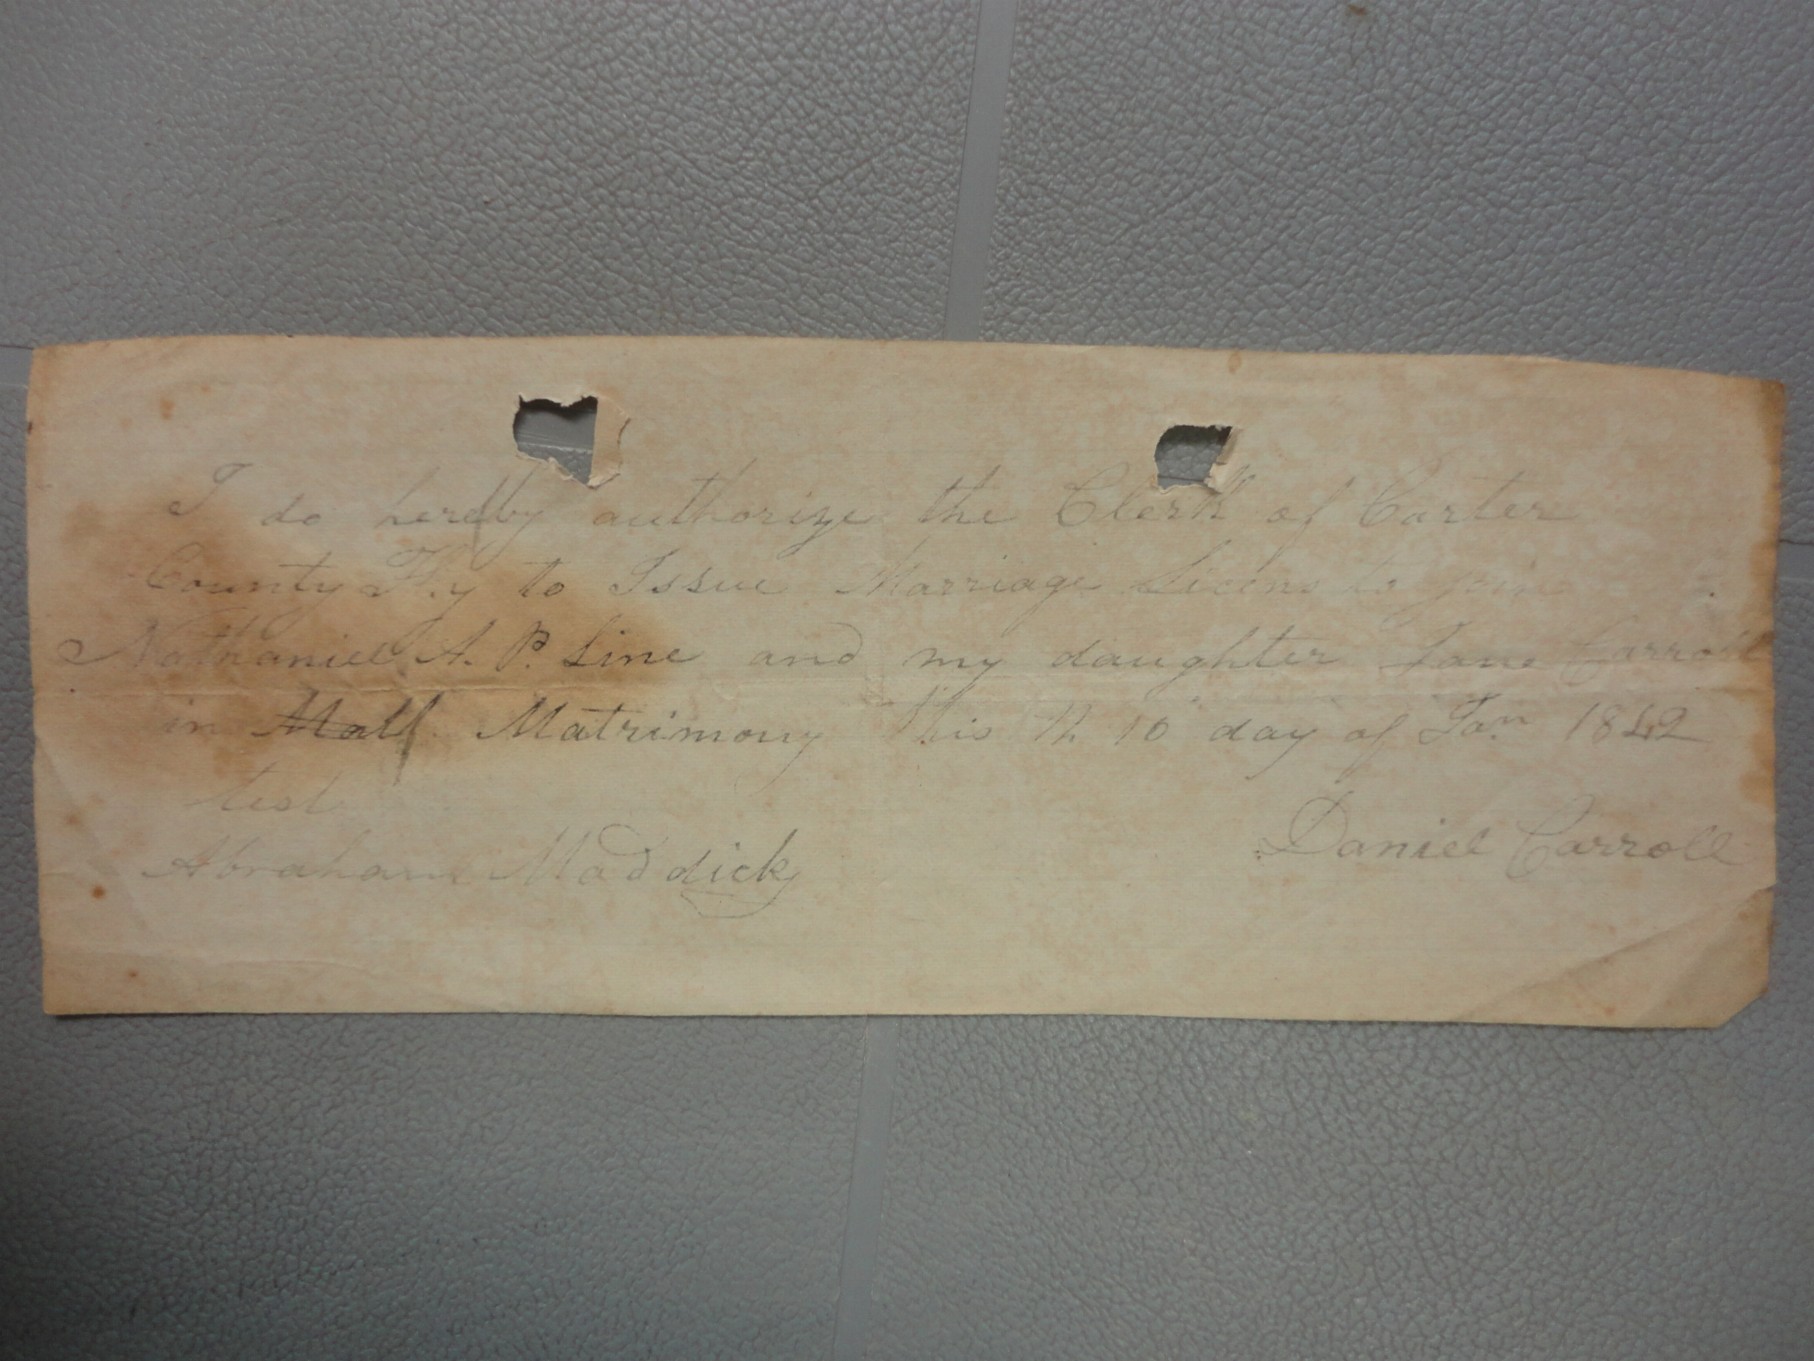 I do hereby authorize the Clerk of Carter
County K.y to Issue Marriage Licens to join
Nathaniel A. P. Line and my daughter Jane Carroll
in Matrimony this 10 day of Jan 1842
test
Abraham Maddick
Daniel Carroll